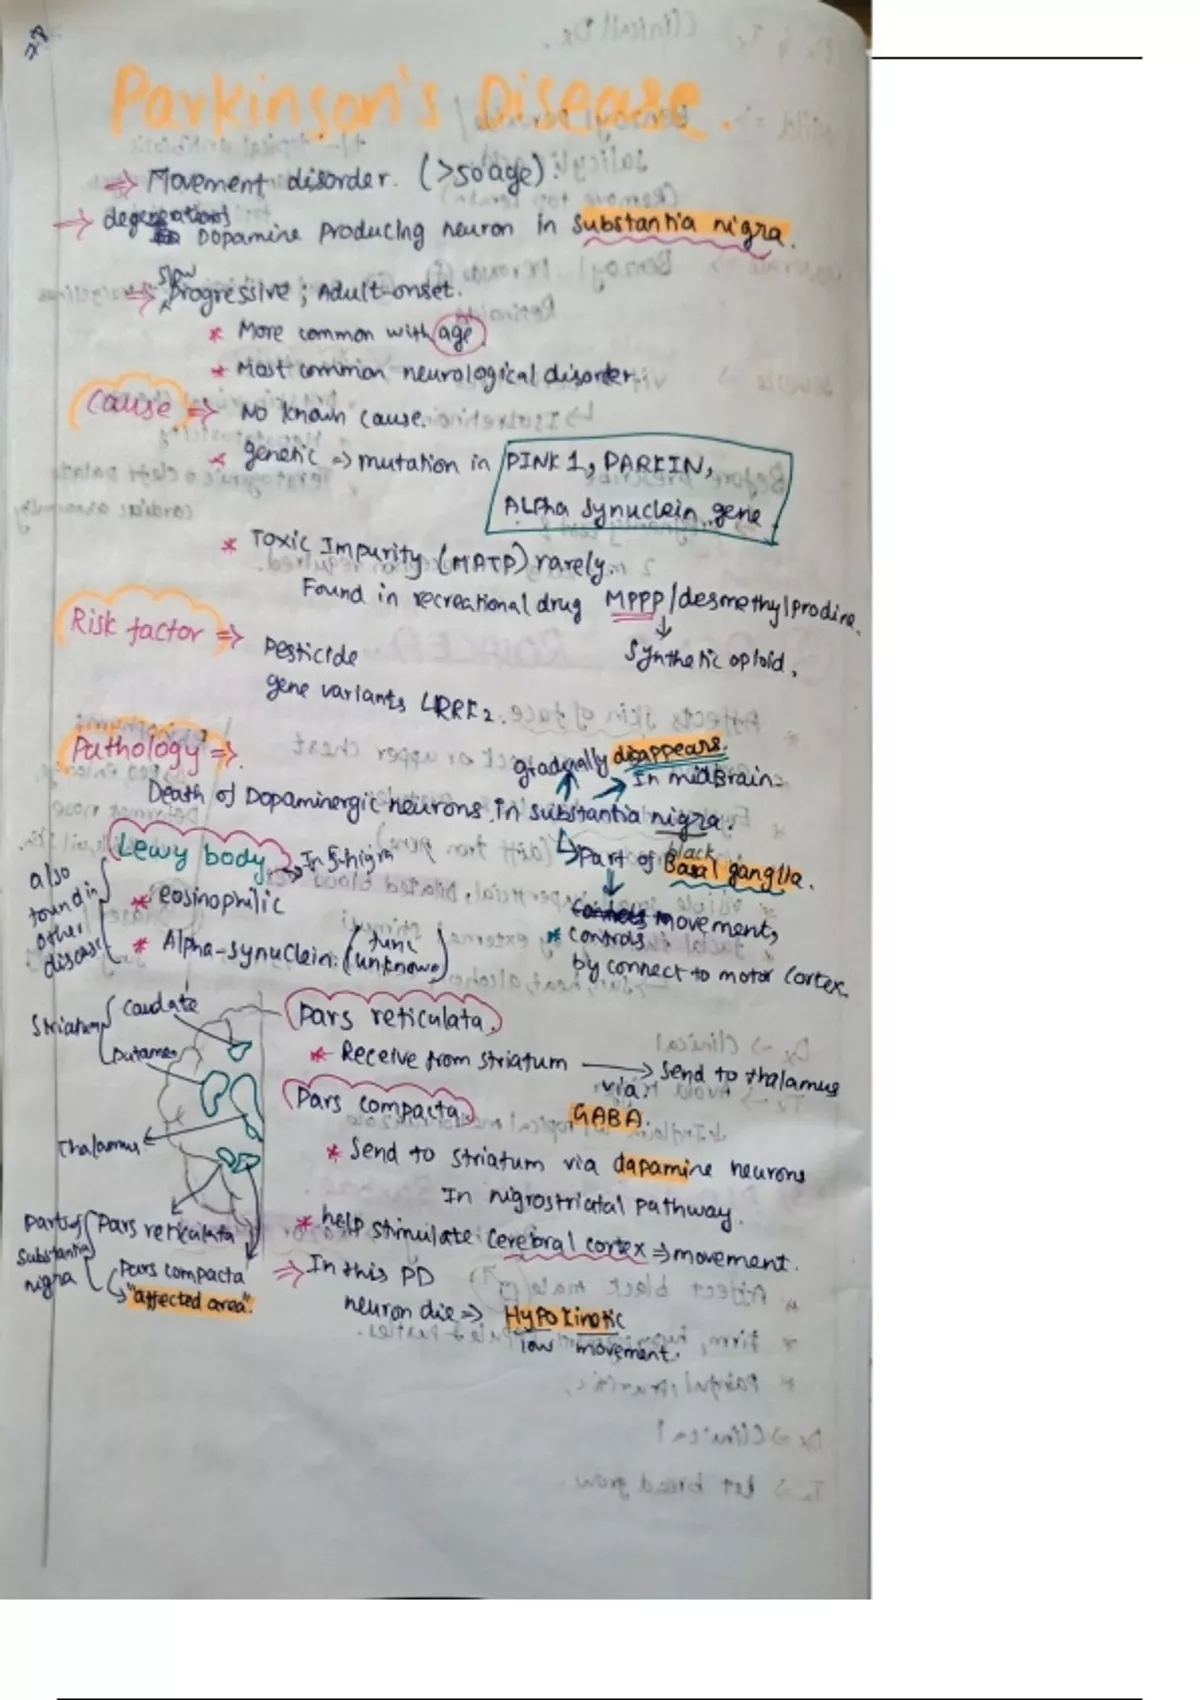 Parkinson's Disease.
⇒ Movement disorder. (>50 age).
⇒ degeneration of
Dopamine producing neuron in substantia nigra.
slow
⇒ Progressive; Adult-onset.
* More common with age
* Most common neurological disorder.
Cause ⇒ No known cause.
* genetic ⇒ mutation in PINK 1, PARKIN,
Alpha synuclein gene
* Toxic Impurity (MPTP) rarely.
Found in recreational drug MPPP/desmethylprodine.
Risk factor ⇒
Synthetic opioid.
Pesticide
gene variants LRRK2.
Pathology ⇒.
gradually disappears.
In midBrain.
Death of Dopaminergic neurons in substantia nigra.
black
Part of Basal ganglia.
Lewy body → In S.nigra
also found in other disease
* eosinophilic
* Alpha-synuclein: (func unknown)
movement,
* controls
by connect to motor cortex.
Striatum
Caudate
Putamen
Thalamus
Pars reticulata.
* Receive from striatum → Send to thalamus
via
GABA.
Pars compacta.
* Send to striatum via dapamine neurons
In nigrostriatal pathway.
* help stimulate cerebral cortex ⇒ movement.
parts of Substantia nigra
Pars reticulata
Pars compacta
"affected area".
⇒ In this PD
neuron die ⇒ Hypokinetic
low movement.